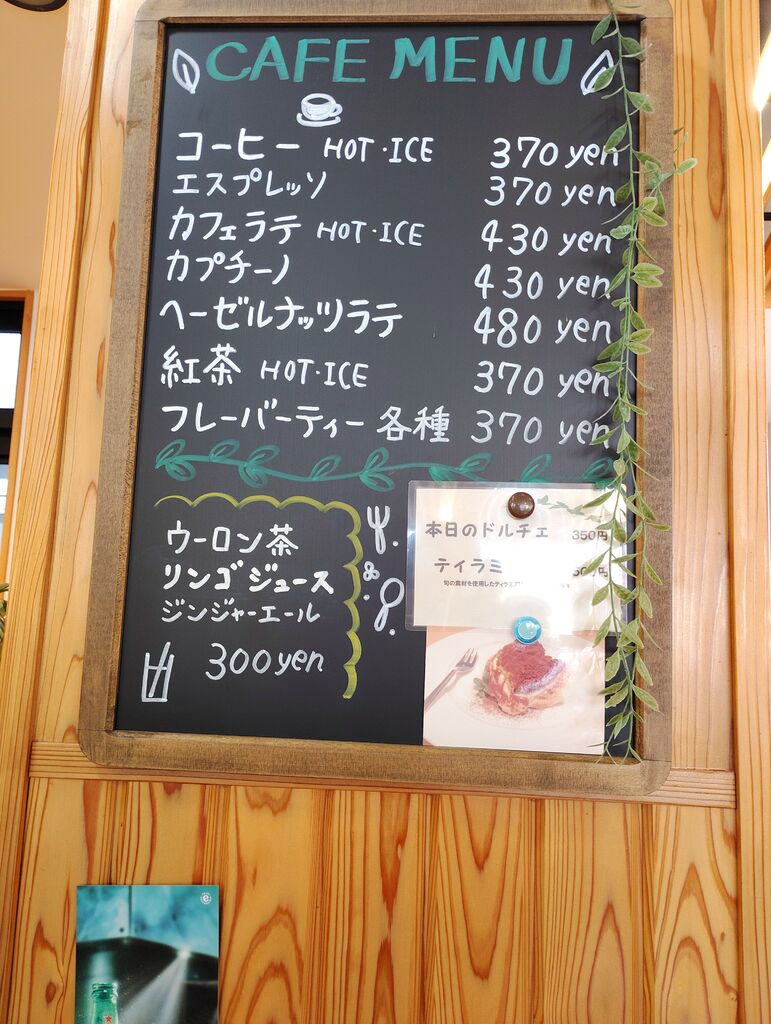 CAFE MENU
コーヒー HOT・ICE 370 yen
エスプレッソ 370 yen
カフェラテ HOT・ICE 430 yen
カプチーノ 430 yen
ヘーゼルナッツラテ 480 yen
紅茶 HOT・ICE 370 yen
フレーバーティー 各種 370 yen
ウーロン茶
リンゴジュース
ジンジャーエール
300yen
本日のドルチェ 350円
ティラミ
旬の食材を使用したティラミ